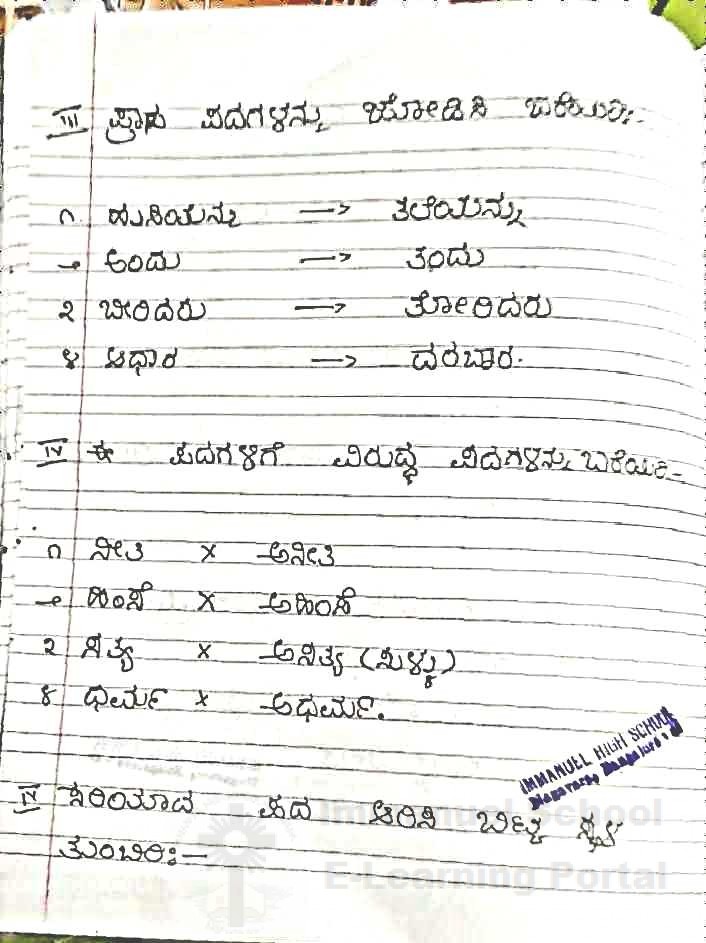 III ಪ್ರಾಸ ಪದಗಳನ್ನು ಜೋಡಿಸಿ ಬರೆಯಿರಿ:-
೧ ಹುಸಿಯನ್ನು —> ತಲೆಯನ್ನು
೨ ಅಂದು —> ತಂದು
೩ ಬೀರಿದರು —> ತೋರಿದರು
೪ ಆಧಾರ —> ದರಬಾರ.
IV ಈ ಪದಗಳಿಗೆ ವಿರುದ್ಧ ಪದಗಳನ್ನು ಬರೆಯಿರಿ:-
೧ ನೀತಿ x ಅನೀತಿ
೨ ಹಿಂಸೆ x ಅಹಿಂಸೆ
೩ ಸತ್ಯ x ಅಸತ್ಯ (ಸುಳ್ಳು)
೪ ಧರ್ಮ x ಅಧರ್ಮ.
IMMANUEL HIGH SCHOOL
IV ಸರಿಯಾದ ಪದ ಆರಿಸಿ ಬಿಟ್ಟ ಸ್ಥಳ
ತುಂಬಿರಿ:-
Immanuel School
E-Learning Portal